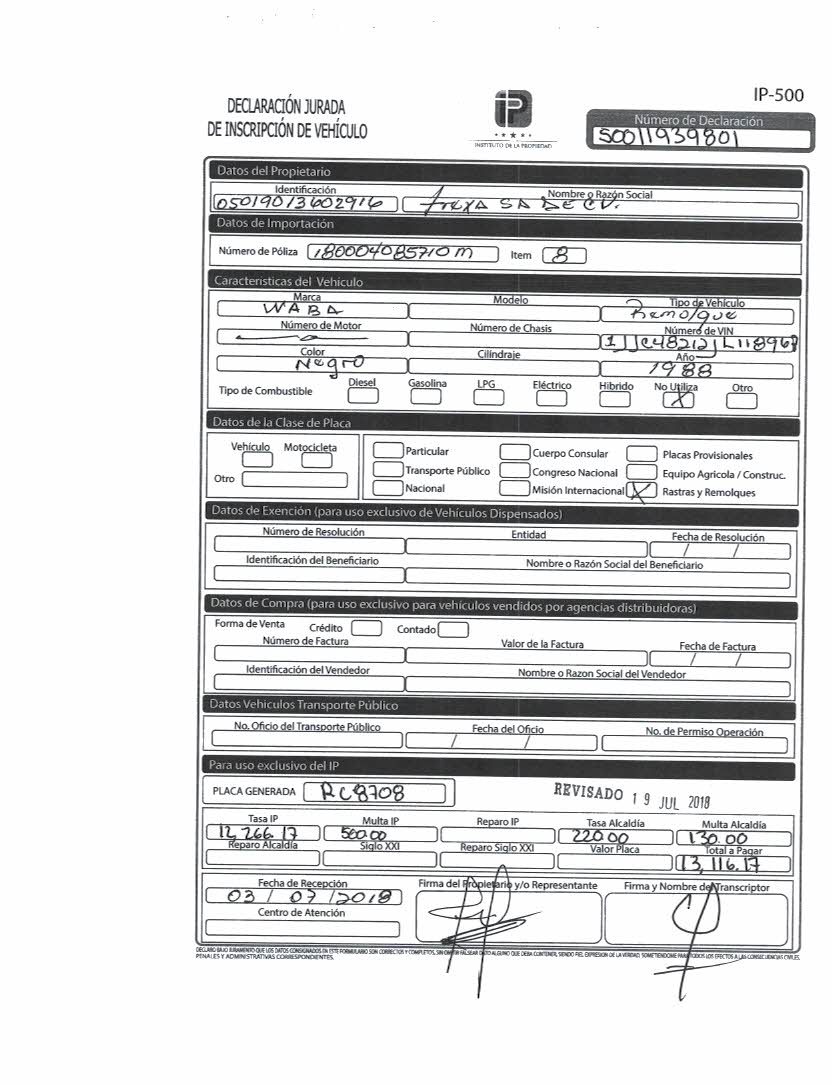 IP-500
DECLARACIÓN JURADA
DE INSCRIPCIÓN DE VEHÍCULO
IP
INSTITUTO DE LA PROPIEDAD
Número de Declaración
50011939801
Datos del Propietario
Identificación Nombre o Razón Social
05019013602916 SA DE CV.
Datos de Importación
Número de Póliza 180004085710M Item 8
Caracteristicas del Vehículo
Marca Modelo Tipo de Vehículo
WABA Remolque
Número de Motor Número de Chasis Número de VIN
1JJC48212JL118967
Color Cilindraje Año
Negro 1988
Tipo de Combustible Diesel Gasolina LPG Eléctrico Hibrido No Utiliza X Otro
Datos de la Clase de Placa
Vehículo Motocicleta
Otro
Particular Cuerpo Consular Placas Provisionales
Transporte Público Congreso Nacional Equipo Agricola / Construc.
Nacional Misión Internacional X Rastras y Remolques
Datos de Exención (para uso exclusivo de Vehículos Dispensados)
Número de Resolución Entidad Fecha de Resolución
/ /
Identificación del Beneficiario Nombre o Razón Social del Beneficiario
Datos de Compra (para uso exclusivo para vehículos vendidos por agencias distribuidoras)
Forma de Venta Crédito Contado
Número de Factura Valor de la Factura Fecha de Factura
/ /
Identificación del Vendedor Nombre o Razon Social del Vendedor
Datos Vehiculos Transporte Público
No. Oficio del Transporte Público Fecha del Oficio No. de Permiso Operación
/ /
Para uso exclusivo del IP
PLACA GENERADA RC8708 REVISADO 19 JUL 2018
Tasa IP Multa IP Reparo IP Tasa Alcaldía Multa Alcaldía
12,266.17 500.00 220.00 130.00
Reparo Alcaldía Siglo XXI Reparo Siglo XXI Valor Placa Total a Pagar
13,116.17
Fecha de Recepción Firma del Propietario y/o Representante Firma y Nombre del Transcriptor
03/07/2018
Centro de Atención
DECLARO BAJO JURAMENTO QUE LOS DATOS CONSIGNADOS EN ESTE FORMULARIO SON CORRECTOS Y COMPLETOS, SIN OMITIR FALSEAR DATO ALGUNO QUE DEBA CONTENER, SIENDO FIEL EXPRESION DE LA VERDAD, SOMETIENDOME PARA TODOS LOS EFECTOS A LAS CONSECUENCIAS CIVILES,
PENALES Y ADMINISTRATIVAS CORRESPONDIENTES.